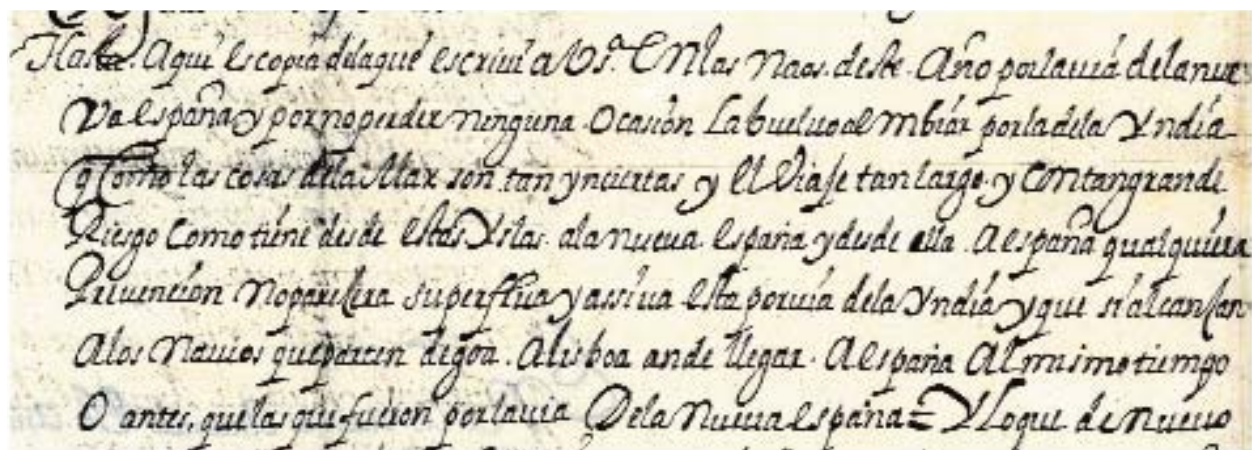 Hasta Aqui es copia dela que escrivi a Vs.ª En las Naos. deste. Año por la via de la nue
va españa y por no perder ninguna Ocasion La buelvo a Embiar por la dela Yndia
q Como las cosas dela Mar son tan ynciertas y El Viaje tan largo y Con tan grande
Riesgo Como tiene desde estas Yslas. a la nueva españa y desde ella. A españa qualquiera
Prevencion No parecera superflua y assi va esta por via dela Yndia y que si alcançan
A los Navios que parten de goa. A lisboa an de llegar. A españa Al mismo tiempo
O antes, que las que fueron por la via De la Nueva españa = Y Lo que de Nuevo